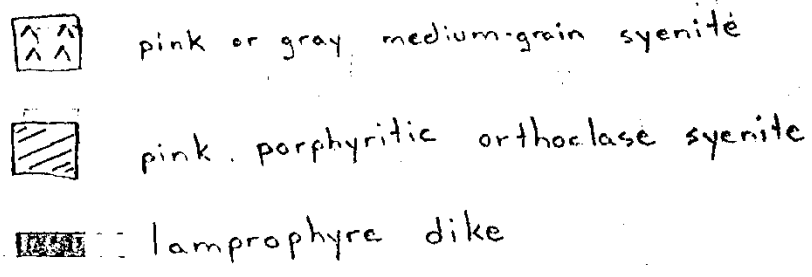 pink or gray medium-grain syenite
pink porphyritic orthoclase syenite
lamprophyre dike